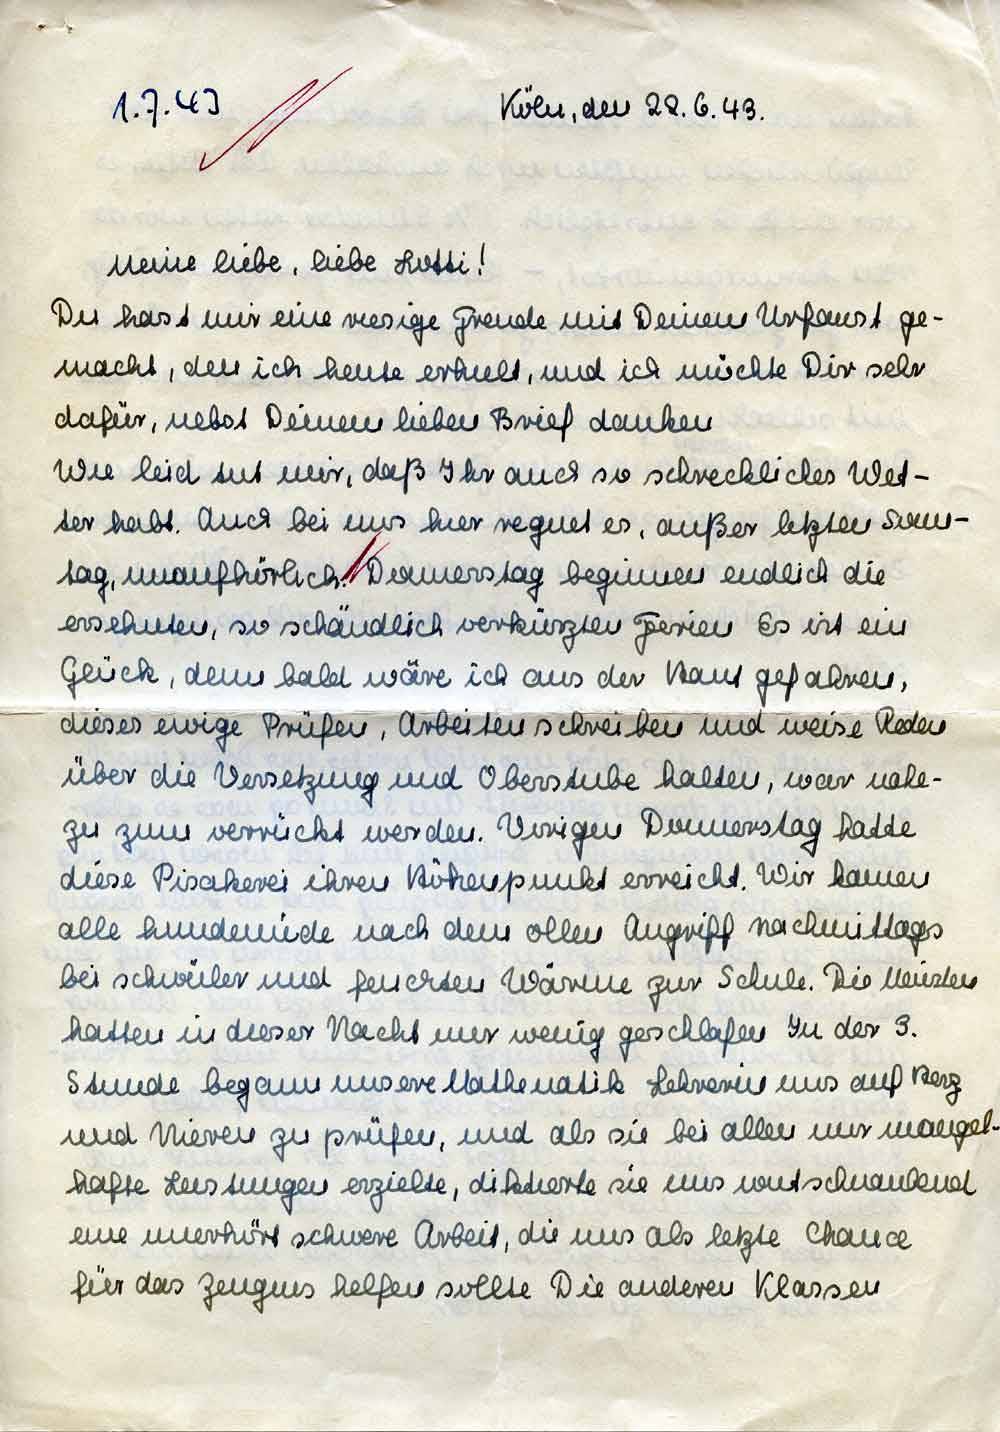 1.7.43
Köln, den 28.6.43.
Meine liebe, liebe Lotti!
Du hast mir eine riesige Freude mit Deinem Urfaust ge-
macht, den ich heute erhielt, und ich möchte Dir sehr
dafür, nebst Deinem lieben Brief danken
Wie leid tut mir, daß Ihr auch so schreckliches Wet-
ter habt. Auch bei uns hier regnet es, außer letzten Sams-
tag, unaufhörlich. Donnerstag beginnen endlich die
ersehnten, so schändlich verkürzten Ferien Es ist ein
Glück, denn bald wäre ich aus der Haut gefahren,
dieses ewige Prüfen, Arbeiten schreiben und weise Reden
über die Versetzung und Oberstube halten, war nahe-
zu zum verrückt werden. Vorigen Donnerstag hatte
diese Pisakerei ihren Höhenpunkt erreicht. Wir kamen
alle hundemüde nach dem ollen Angriff nachmittags
bei schwüler und feuchten Wärme zur Schule. Die Meisten
hatten in dieser Nacht nur wenig geschlafen In der 3.
Stunde begann unsere Mathematik Lehrerin uns auf Herz
und Nieren zu prüfen, und als sie bei allen nur mangel-
hafte Leistungen erzielte, diktierte sie uns wutschnaubend
eine unerhört schwere Arbeit, die uns als letzte Chance
für das Zeugnis helfen sollte Die anderen Klassen